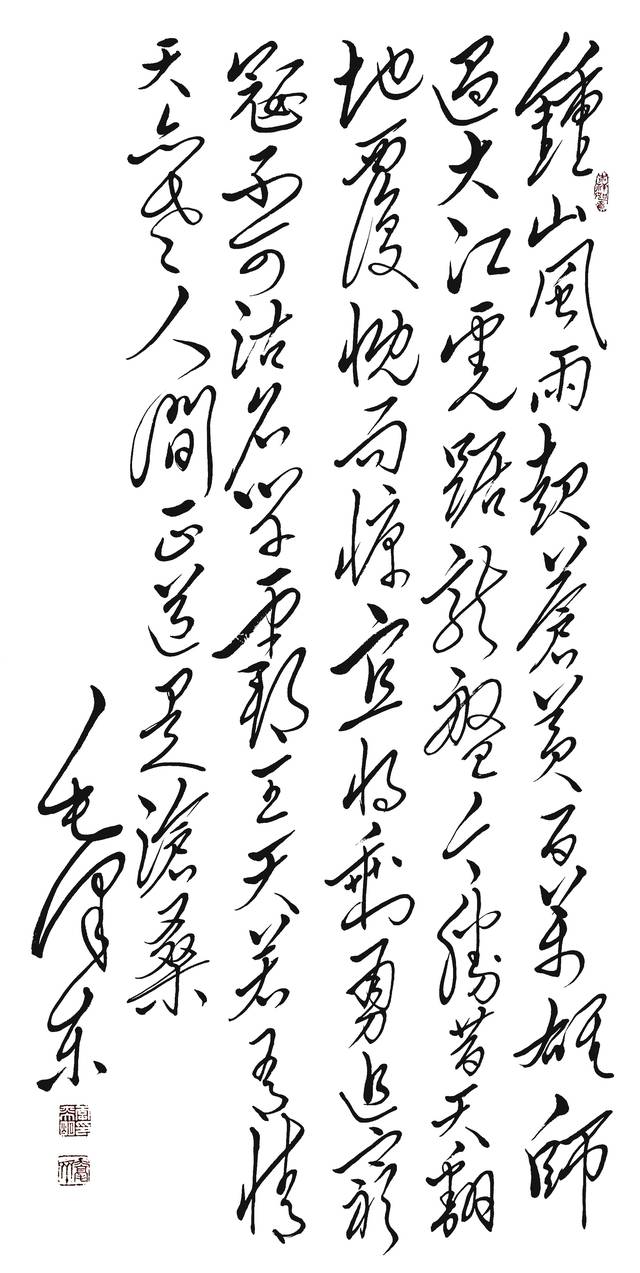 鍾山風雨起蒼黃百萬雄師
過大江虎踞龍盤今勝昔天翻
地覆慨而慷宜將剩勇追窮
寇不可沽名學霸王天若有情
天亦老人間正道是滄桑
毛澤东